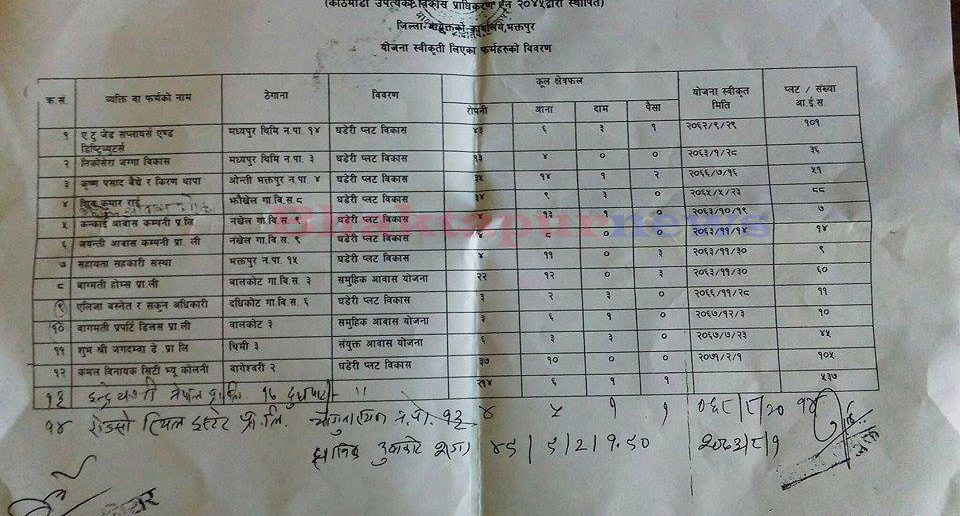 (काठमाडौं उपत्यका विकास प्राधिकरण ऐन २०४५द्वारा स्थापित)
जिल्ला आयुक्तको कार्यालय,भक्तपुर
योजना स्वीकृती लिएका फर्महरुको विवरण
क्र.सं. व्यक्ति वा फर्मको नाम ठेगाना विवरण कूल क्षेत्रफल योजना स्वीकृत मिति प्लट / संख्या आ.ई.स
रोपनी आना दाम पैसा
१ ए टु जेड सप्लायर्स एण्ड डिष्ट्रिब्युटर्स मध्यपुर थिमि न.पा. १४ घडेरी प्लट विकास ४३ ६ ३ १ २०६२/९/२९ १०१
२ निकोसेरा जग्गा विकास मध्यपुर थिमि न.पा. ३ घडेरी प्लट विकास १३ ४ ० ० २०६३/१/२८ ३६
३ कृष्ण प्रसाद बैद्य र किरण थापा भक्तपुर न.पा. ४ घडेरी प्लट विकास ३५ १४ १ २ २०६६/७/१६ ५१
४ कुमार राई झौखेल गा.वि.स ८ घडेरी प्लट विकास ३४ ९ ३ ० २०६५/५/२३ ८८
५ आवास कम्पनी प्रा.लि नंखेल गा.वि.स. ९ घडेरी प्लट विकास ४ १३ १ ० २०६३/१०/१९ ७
६ जयन्ती आवास कम्पनी प्रा. ली नंखेल गा.वि.स. ९ घडेरी प्लट विकास ४ ८ ० ० २०६३/११/१४ १४
७ सहायता सहकारी संस्था भक्तपुर न.पा. १५ घडेरी प्लट विकास ४ ११ ० ३ २०६३/११/३० ९
८ बाग्मती होम्स प्रा.ली बालकोट गा.वि.स. ३ समुहिक आवास योजना २२ १२ ० ३ २०६३/११/३० ६०
९ एलिजा बस्नेत र सकुन अधिकारी दधिकोट गा.वि.स. ६ घडेरी प्लट विकास ३ २ ३ ० २०६६/११/२८ ११
१० बागमती प्रपर्टि डिलस प्रा.ली बालकोट ३ समुहिक आवास योजना ३ ६ १ ० २०६७/१२/३ १०
११ शुभ श्री जगदम्बा डे .प्रा.लि थिमी ३ संयुक्त आवास योजना ६ ३ ३ ० २०६७/७/२३ ४५
१२ कमल बिनायक सिटी भ्यू कोलनी बागेश्वरी २ घडेरी प्लट विकास ३७ १० ० ० २०७१/२/१ १०५
२१४ ६ १ १ ५३७
Bhaktapurnews
१३ नेपाल प्रा.लि. १७ ॥
१४ रियल इस्टेट प्रा.लि. चाँगुनारायण न.पा. १३ ४ ५ १ १